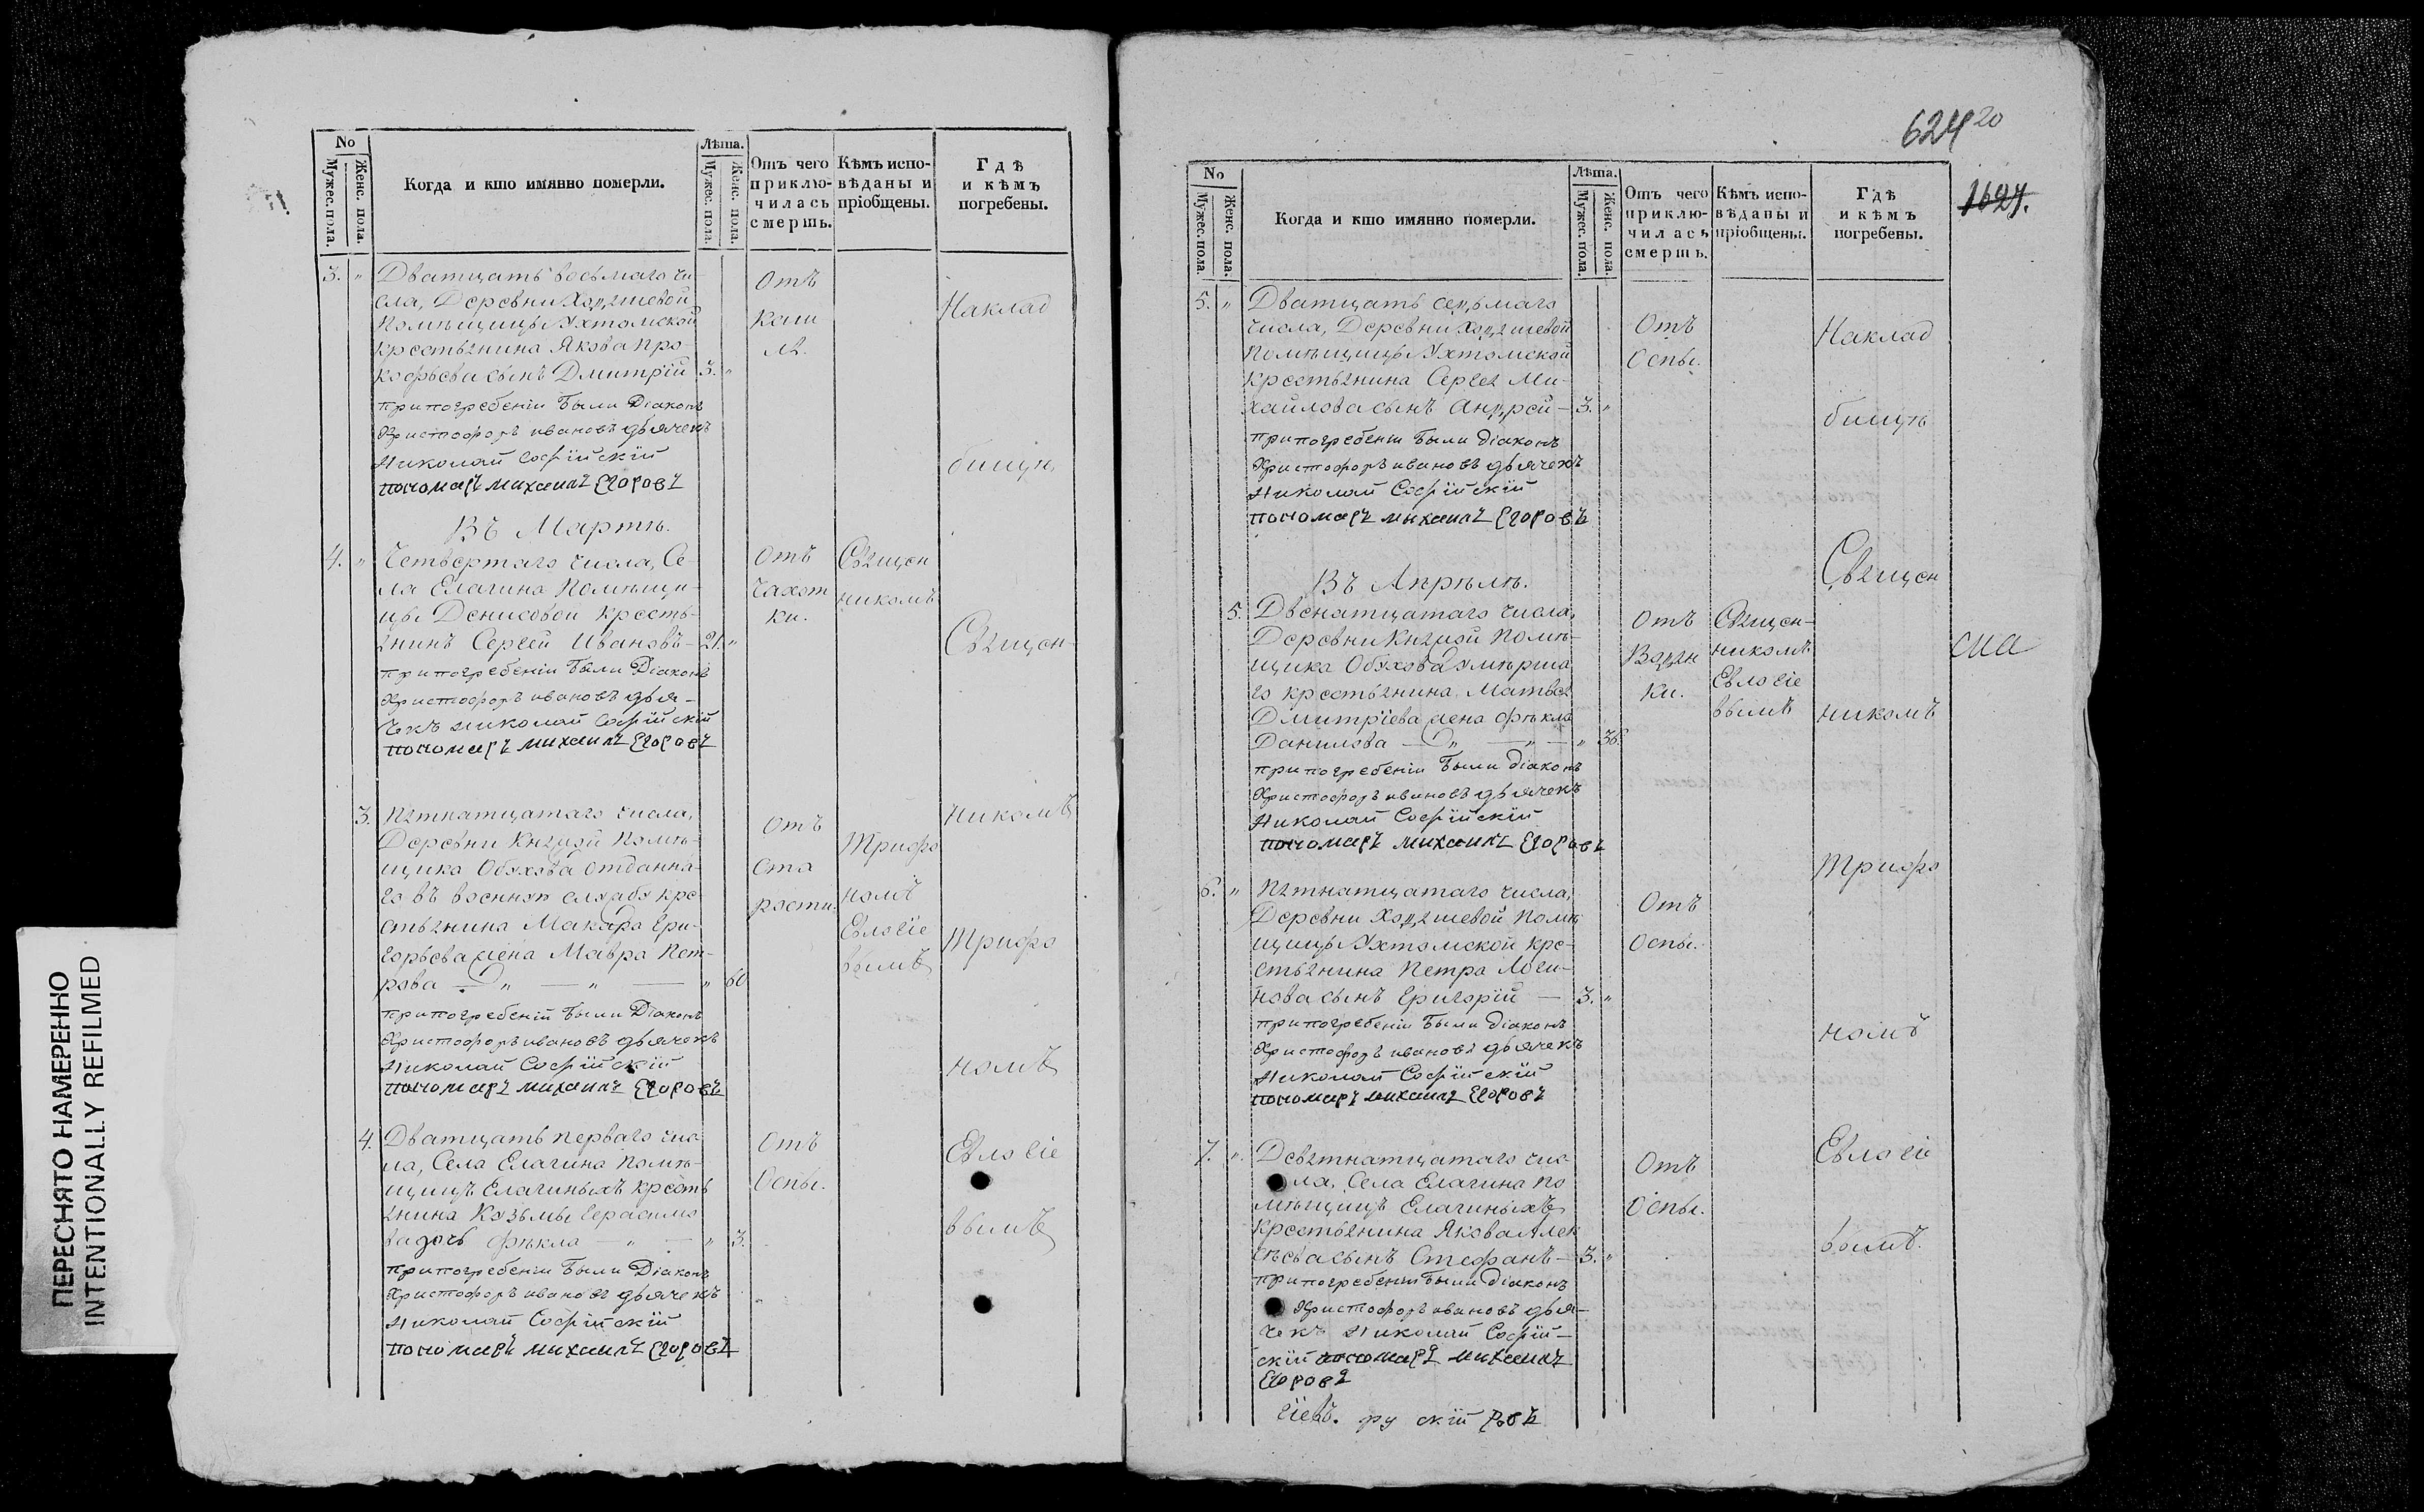 No
Мужес. пола.
Женс. пола.
Когда и кто имянно померли.
Лѣта.
Мужес. пола.
Женс. пола.
Отъ чего
приклю-
чилась
смерть.
Кѣмъ испо-
вѣданы и
пріобщены.
Гдѣ
и кѣмъ
погребены.
3. „ Дватцать восьмаго чи-
сла, Деревни Ходяшевой
Помѣщицы Ухтомской
крестьянина Якова Про-
кофьева сынъ Дмитрій 3. „
При погребеніи были Діаконъ
Христофоръ ивановъ дьячекъ
Николай Софійскій
пономарь михаилъ Егоровъ
Отъ
каш
ля.
Въ Мартѣ.
4. „ Четвертаго числа, Се-
ла Елагина Помѣщи-
цы Денисовой кресть-
янинъ Сергей Ивановъ - 21. „
при погребеніи были Діаконъ
Христофоръ ивановъ дья-
чекъ николай Софійскій
пономарь михаилъ Егоровъ
Отъ
чахот
ки.
Священ
никомъ
3. Пятнатцатаго числа,
Деревни Княжой Помѣ-
щика Обухова отданна-
го въ военную службу кре-
стьянина Макара Гри-
горьева жена Мавра Пет-
рова — „ — „ — „ 60.
при погребеніи были Діаконъ
Христофоръ ивановъ дьячекъ
Николай Софійскій
пономарь михаилъ Егоровъ
Отъ
ста
рости.
Трифо
номъ
Евлогіе
вымъ
4. Дватцать перваго чис
ла, Села Елагина помѣ-
щицъ Елагиныхъ кресть
янина Козьмы Герасимо
ва дочь Фекла — „ — „ 3.
при погребеніи были Діаконъ
Христофоръ ивановъ дьячекъ
Николай Софійскій
пономарь михаилъ Егоровъ
Отъ
Оспы.
На клад
бищѣ
Священ
никомъ
Трифо
номъ
Евлогіе
вымъ
ПЕРЕСНЯТО НАМЕРЕННО
INTENTIONALLY REFILMED
624 20
1627.
No
Мужес. пола.
Женс. пола.
Когда и кто имянно померли.
Лѣта.
Мужес. пола.
Женс. пола.
Отъ чего
приклю-
чилась
смерть.
Кѣмъ испо-
вѣданы и
пріобщены.
Гдѣ
и кѣмъ
погребены.
5. „ Дватцать седьмаго
числа, Деревни Ходяшевой
Помѣщицы Ухтомской
крестьянина Сергея Ми-
хайлова сынъ Андрей - 3. „
при погребеніи были діаконъ
Христофоръ ивановъ дьячекъ
Николай Софійскій
пономарь михаилъ Егоровъ
Отъ
Оспы.
Въ Апрѣлѣ.
5. Двенатцатаго числа,
Деревни Княжой помѣ-
щика Обухова умѣрша
го крестьянина Матвея
Дмитріева жена Фекла
Данилова — „ — „ — „ 36.
при погребеніи были діаконъ
Христофоръ ивановъ дьячекъ
Николай Софійскій
пономарь михаилъ Егоровъ
Отъ
Водян
ки.
Священ-
никомъ
Евлогіе
вымъ
6. „ Пятнатцатаго числа,
Деревни Ходяшевой помѣ
щицы Ухтомской кре-
стьянина Петра Логи-
нова сынъ Григорій — 3. „
при погребеніи были діаконъ
Христофоръ ивановъ дьячекъ
Николай Софійскій
пономарь михаилъ Егоровъ
Отъ
Оспы.
7. „ Девятнатцатаго чис
ла, Села Елагина по
мѣщицъ Елагиныхъ
крестьянина Якова Алек
сѣева сынъ Стефанъ - 3. „
при погребеніи были діаконъ
Христофоръ ивановъ дья-
чекъ Николай Софій-
скій пономарь михаилъ
Егоровъ
Отъ
Оспы.
На клад
бищѣ
Священ
никомъ
Трифо
номъ
Евлогіе
вымъ.
гіевъ. фу скій ровъ